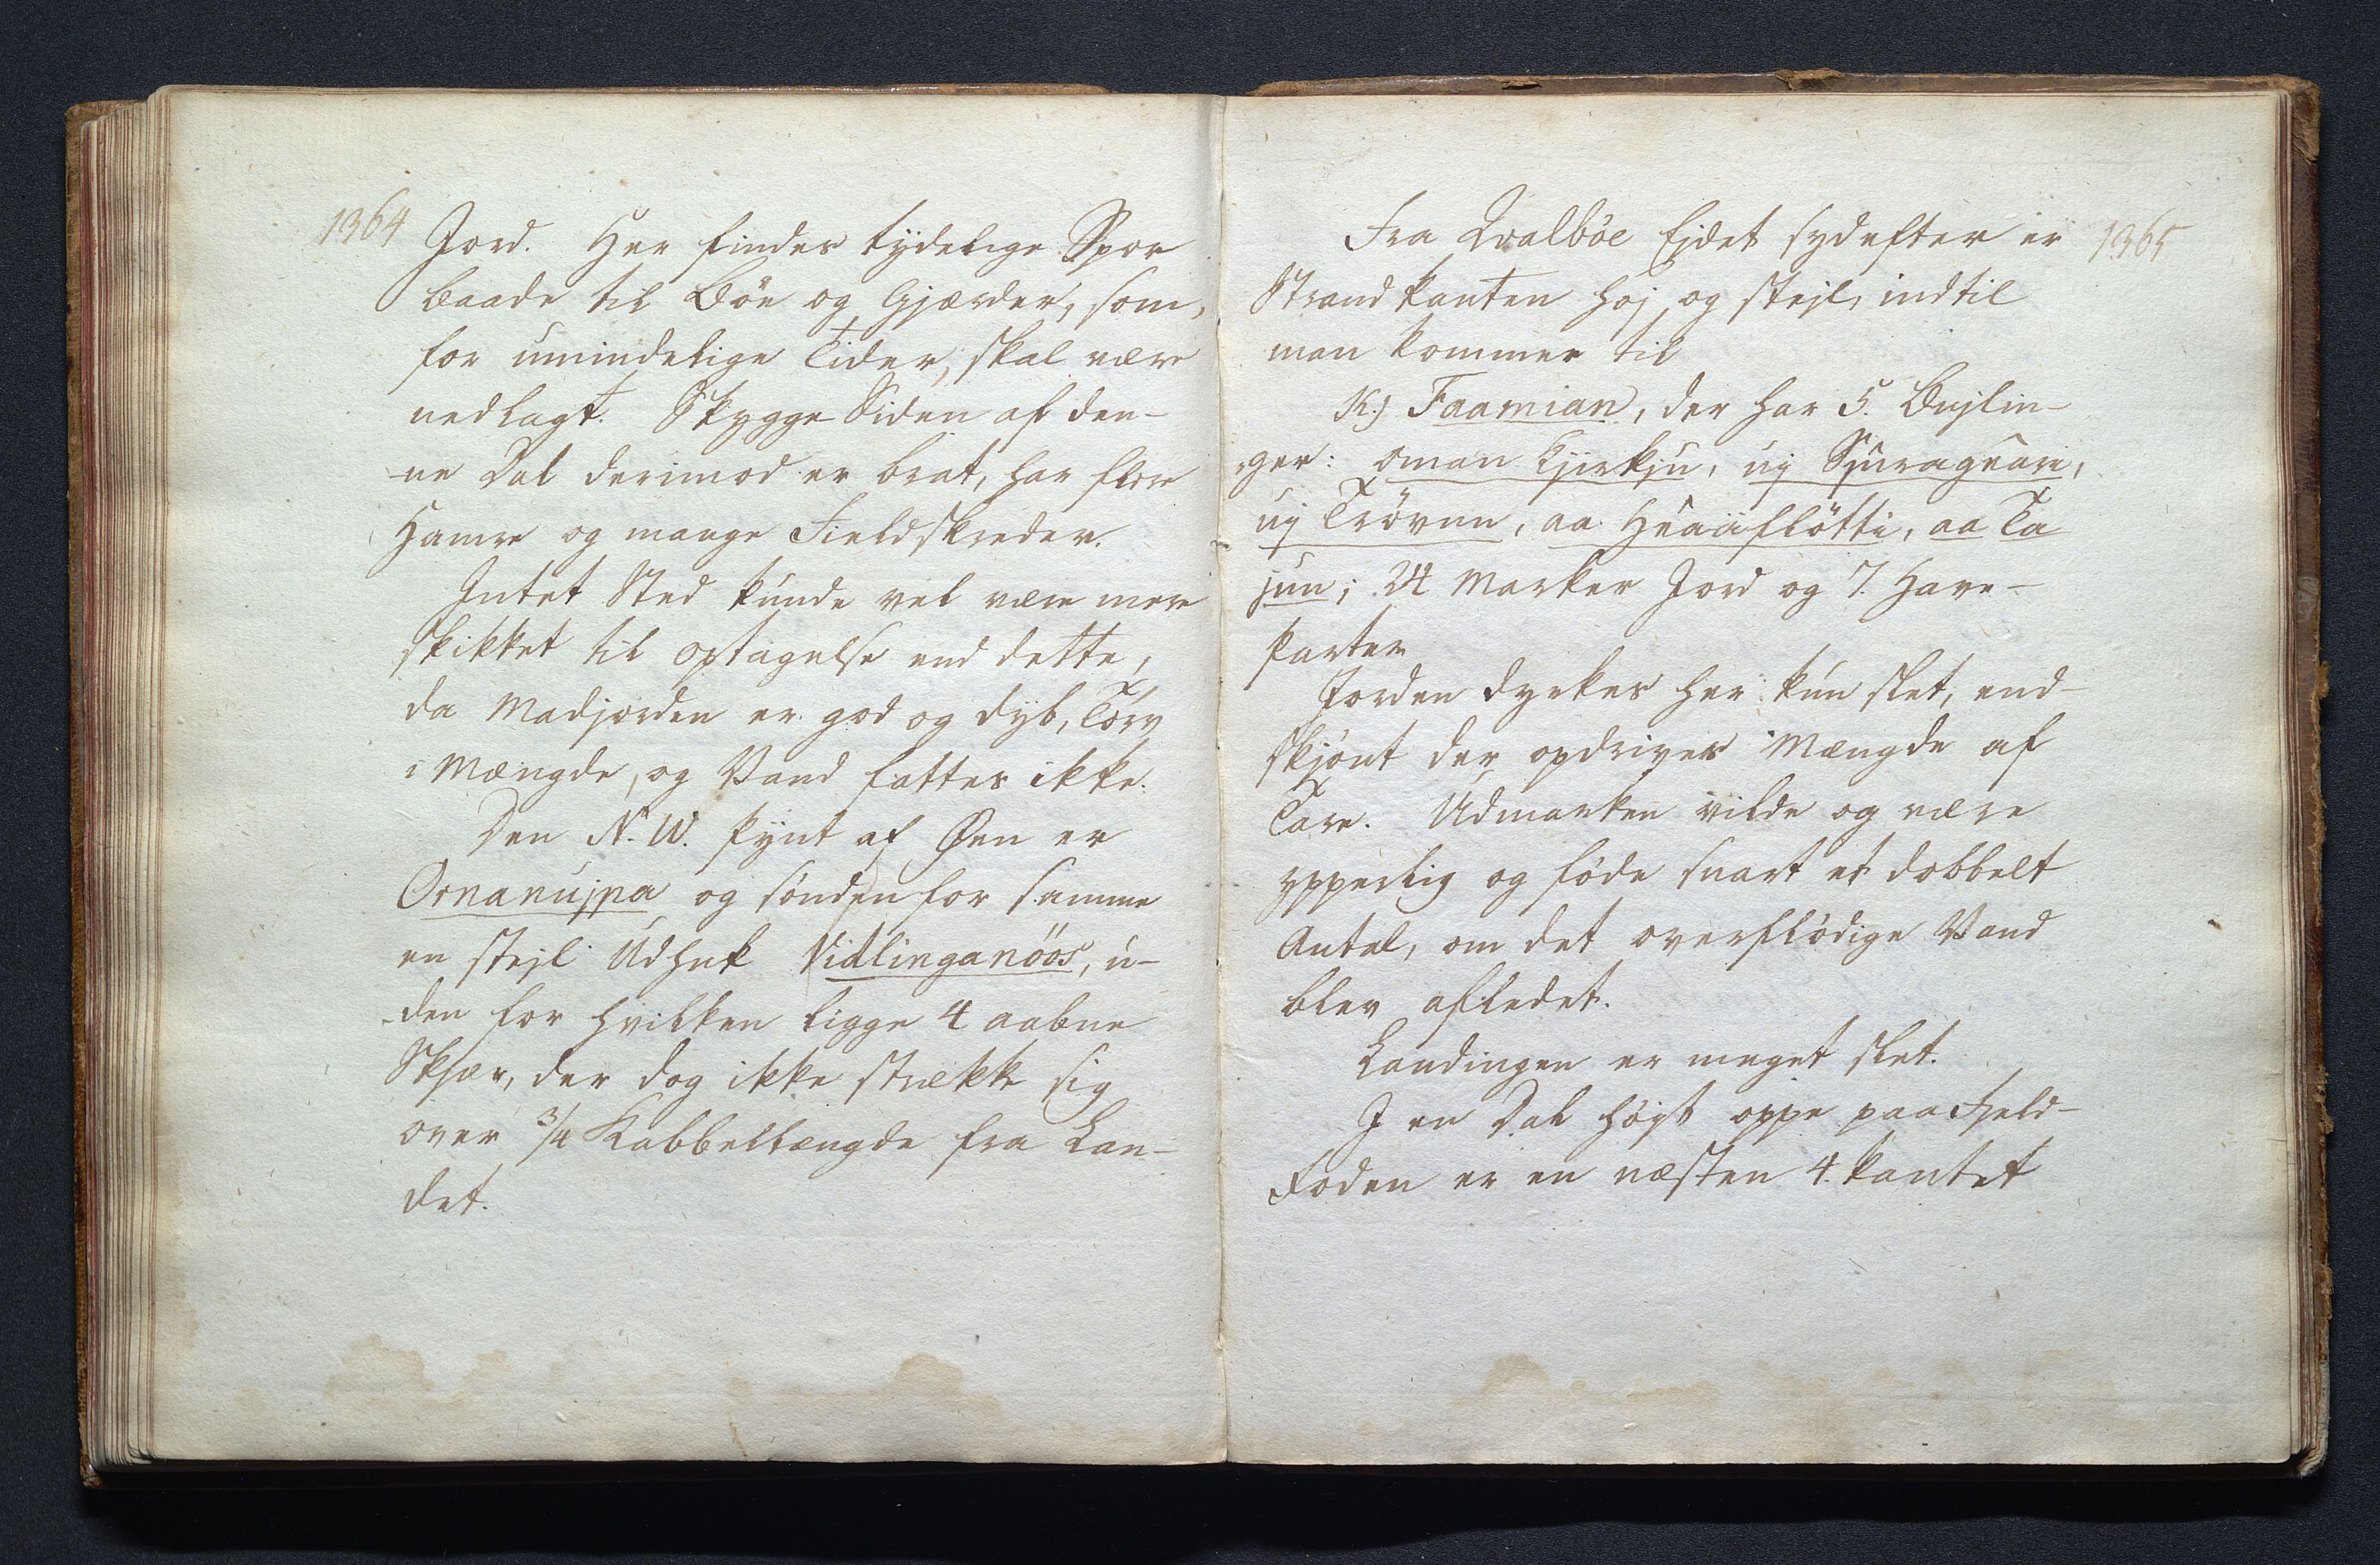 1364
Jord. Her findes tÿdelige Spor
baade til Böe og Gjærder, som,
for umindelige Tider, skal være
nedlagt. Skygge Siden af den-
ne Dal derimod er brat, har flere
Hamre og mange Fieldskreder.
Intet Sted kunde vel være mere
skikket til Optagelse end dette,
da Madjorden er god og dÿb, Törv
i Mængde, og Vand fattes ikke.
Den N. W. Pÿnt af Øen er
Ornanujpa og sönden for samme
en stejl Udhuk Vidlinganöös, u-
den for hvilken ligge 4 aabne
Skjær, der dog ikke strække sig
over 3/4 Kabbellængde fra Lan-
det.
1365
Fra Qvalböe Ejdet sydefter er
Strandkanten höj og stejl, indtil
man kommer til
K.) Faamian, der har 5. Bejlin-
ger: oman Kjirkju, uj Sjurageare,
uj Trövun, aa Heaaflötti, aa Ta
jun; 24 Marker Jord og 7. Have-
parter
Jorden dyrkes her kun slet, end-
skjönt der opdrives Mængde af
Tare. Udmarken vilde og være
ypperlig og föde snart et dobbelt
Antal, om det overflödige Vand
blev afledet.
Landingen er meget slet.
I en Dal höjt oppe paa Fjeld-
Foden er en næsten 4. kantet